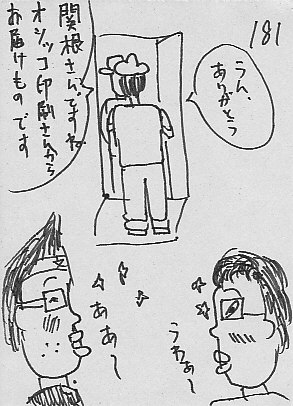 181
関根さんですね。
オシッコ印刷さんから
お届けものです
うん、
ありがとう
ああ〜
うわぁ〜